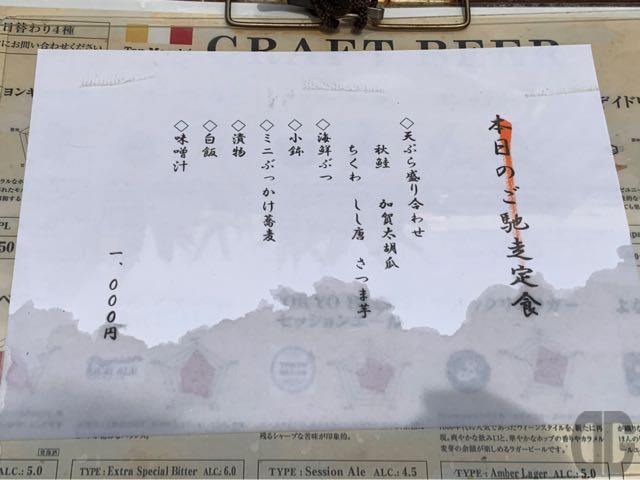 本日のご馳走定食
◇天ぷら盛り合わせ
秋鮭 加賀太胡瓜
ちくわ しし唐 さつま芋
◇海鮮ぶつ
◇小鉢
◇ミニぶっかけ蕎麦
◇漬物
◇白飯
◇味噌汁
一、〇〇〇円
日替わり4種
CRAFT BEER
残るシャープな苦味が印象的。
ALC.: 5.0
TYPE : Extra Special Bitter ALC.: 6.0
TYPE : Session Ale ALC.: 4.5
TYPE : Amber Lager ALC.: 5.0